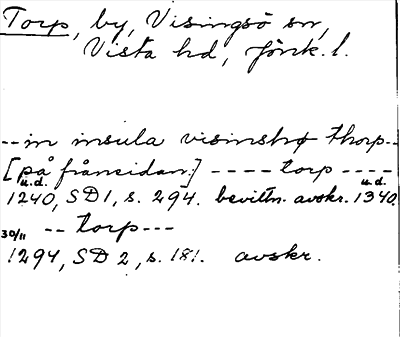 Torp, by, Visingsö sn,
Vista hd, Jönk. l.
-- in insula visinshø thorp --
[påframsidan:] ---- torp ----
u.d. u.d.
1240, SD 1, s. 294. bevittn. avskr. 1340.
-- torp ---
30/11
1294, SD 2, s. 181. avskr.